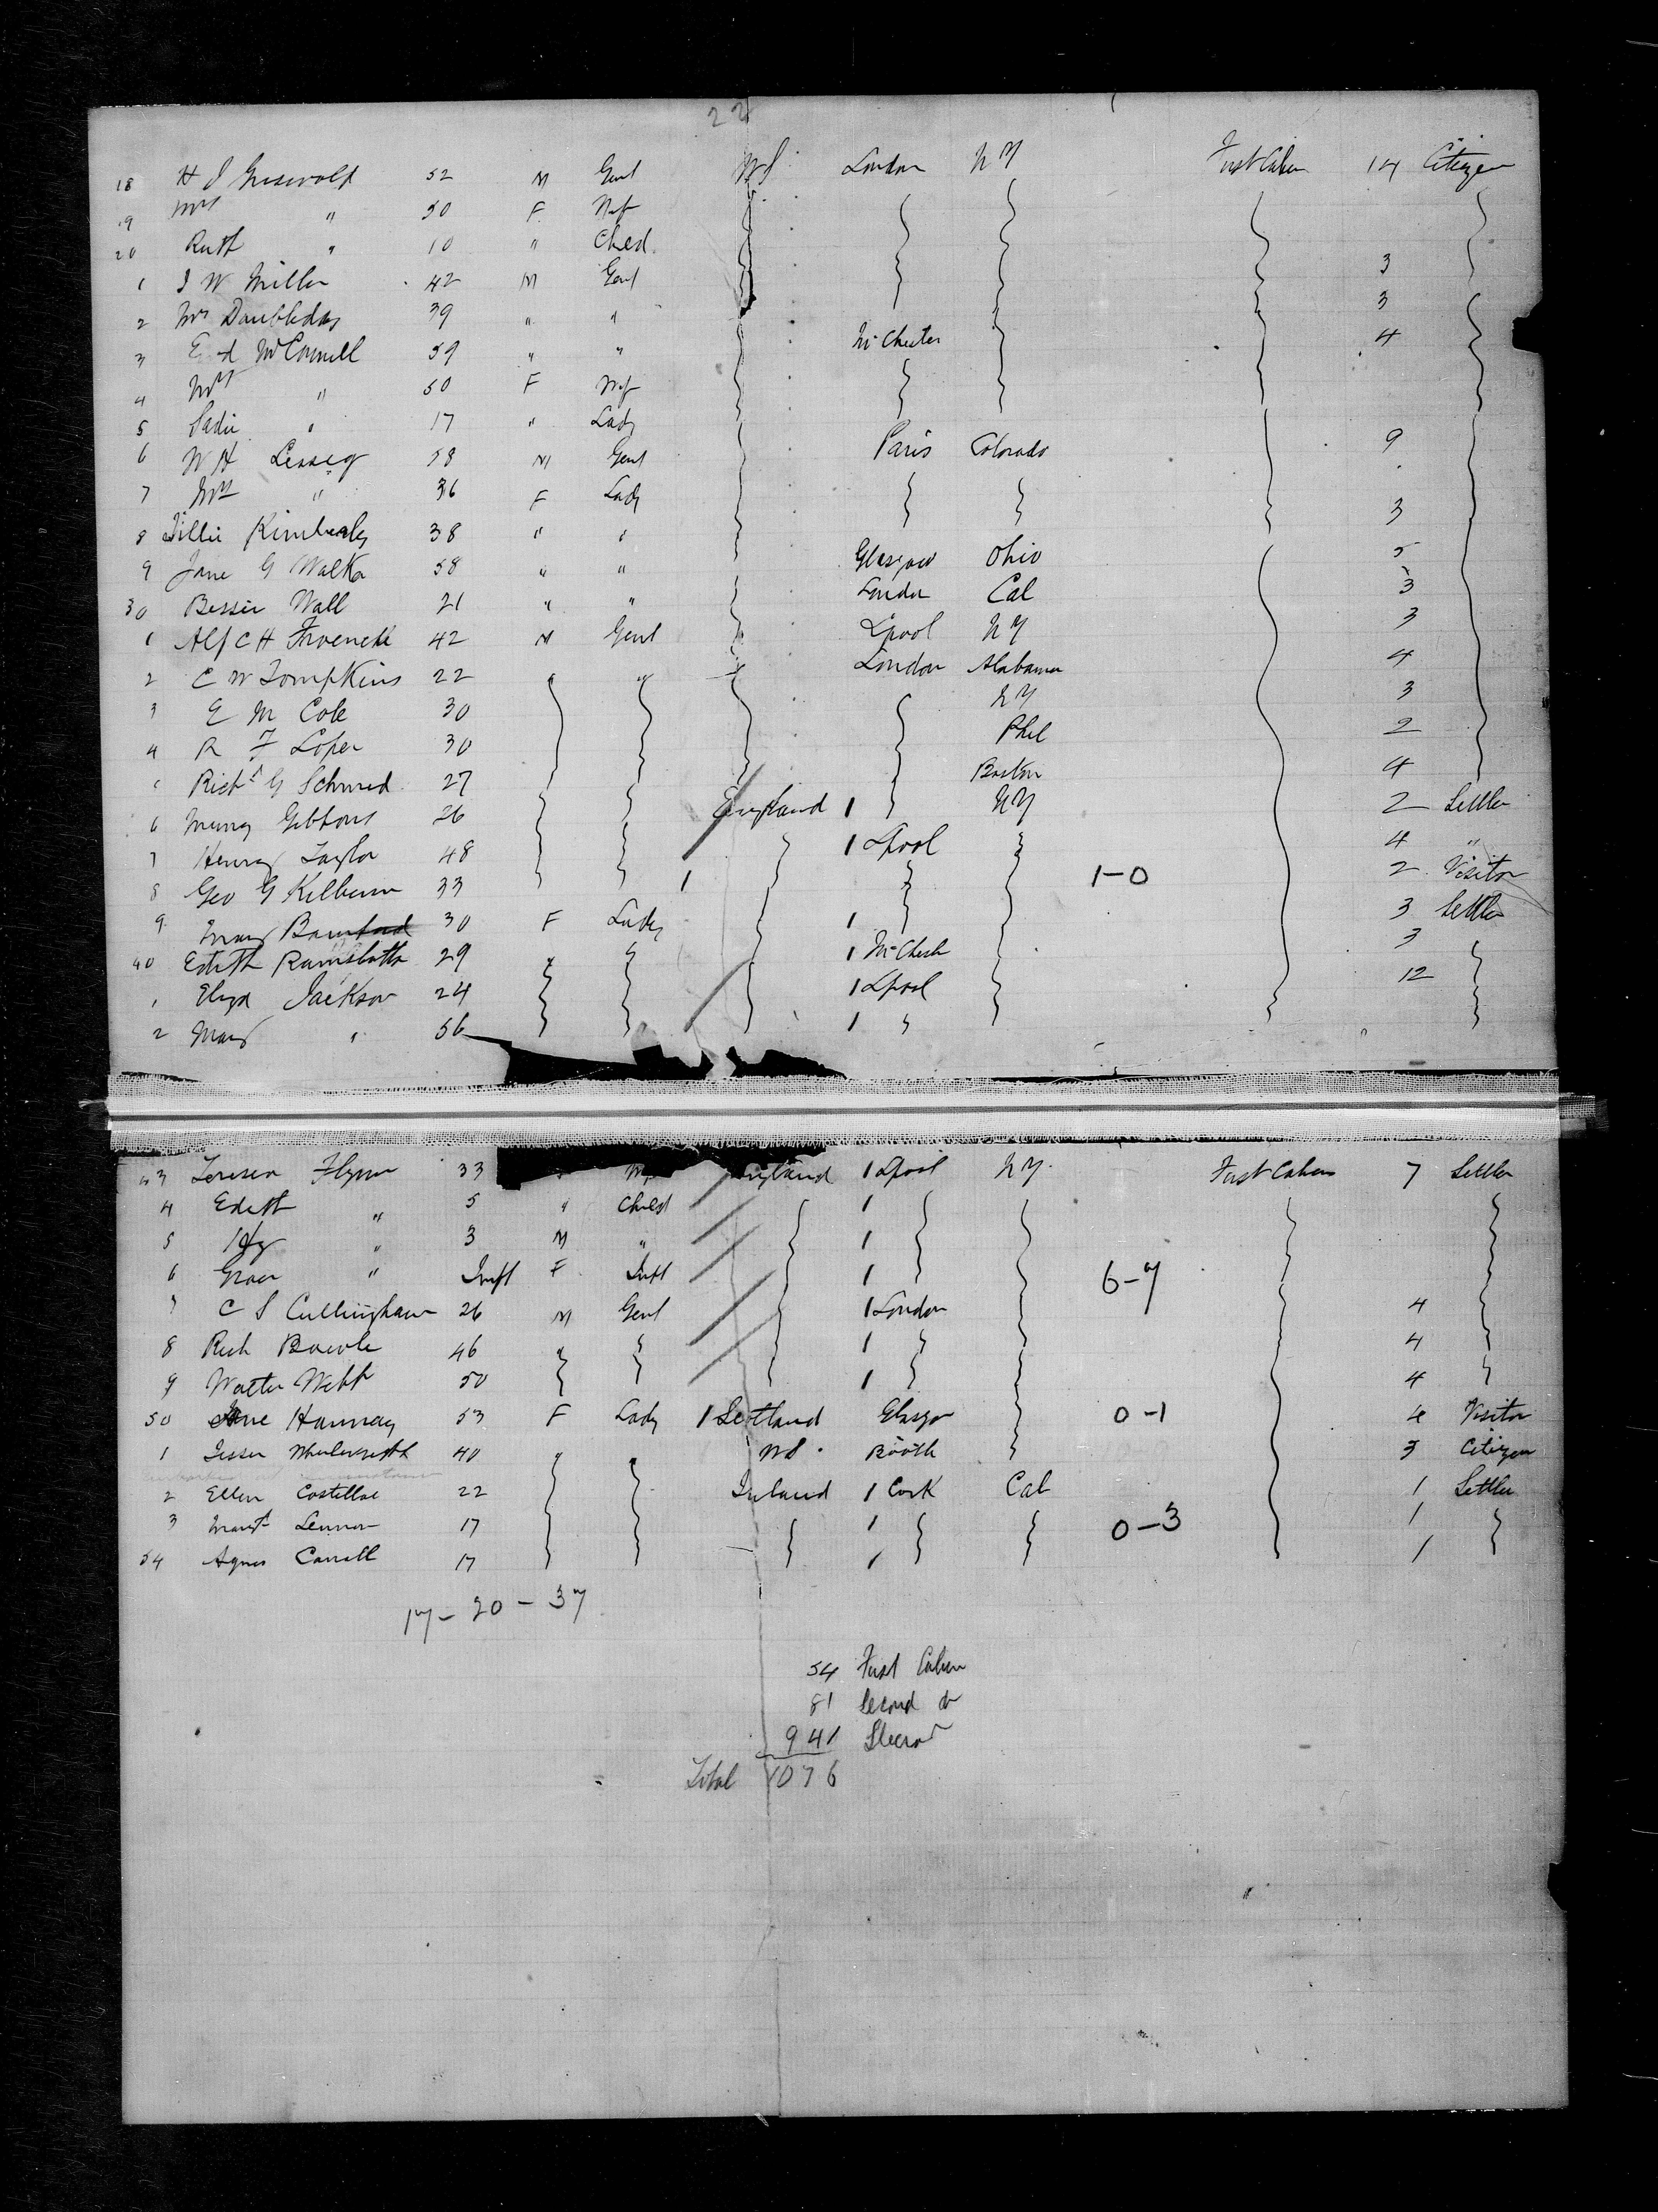 22
18 H J Griswold 52 M Gent US London NY First Cabin 14 Citizen
19 Mrs " 50 F Wife
20 Ruth " 10 " Child
1 J W Miller 42 M Gent 3
2 Mr Doubleday 39 " " 3
3 McConnell 59 " " McChester 4
4 Mrs " 50 F Wife
5 Sadie " 17 " Lady
6 W H 58 M Gent Paris Colorado 9
7 Mrs " 36 F Lady
8 Tillie Kimberly 38 " " 3
9 Jane G Walker 58 " " Glasgow Ohio 5
30 Bessie Wall 21 " " London Cal 3
1 Alf C H 42 M Gent Lpool NY 3
2 C W Tompkins 22 " " London Alabama 4
3 E M Cole 30 NY 3
4 R F Loper 30 Phil 2
Richd G Schmed 27 Boston 4
6 Gibbons 26 England 1 NY 2 Settler
7 Henry Taylor 48 1 Lpool 4 "
8 Geo G Kilburn 33 1 1-0 2 Visitor
9 Mary Bamford 30 F Lady 1 3 Settler
40 Edith Ramsbottom 29 " 1 McChest 3
1 Eliza Jackson 24 1 Lpool 12
2 Mary " 56 1
43 Teresa Flynn 33 England 1 Lpool NY First Cabin 7 Settler
4 Edith " 5 " Child 1
5 Hy " 3 M " 1
6 Grace " Inft F Inft 1 6-7
7 C S Cullingham 26 M Gent 1 London 4
8 Rich 46 " 1 4
9 Walter Webb 50 1 4
50 Jane Hannay 53 F Lady 1 Scotland Glasgow 0-1 4 Visitor
1 Jessie Wheelwright 40 " " US Bootle 3 Citizen
2 Ellen Costelloe 22 Ireland 1 Cork Cal 1 Settler
3 Margt Lennon 17 1 0-3 1
54 Agnes Carroll 17 1 1
17-20-37
54 First Cabin
81 Second do
941 Steerage
Total 1076